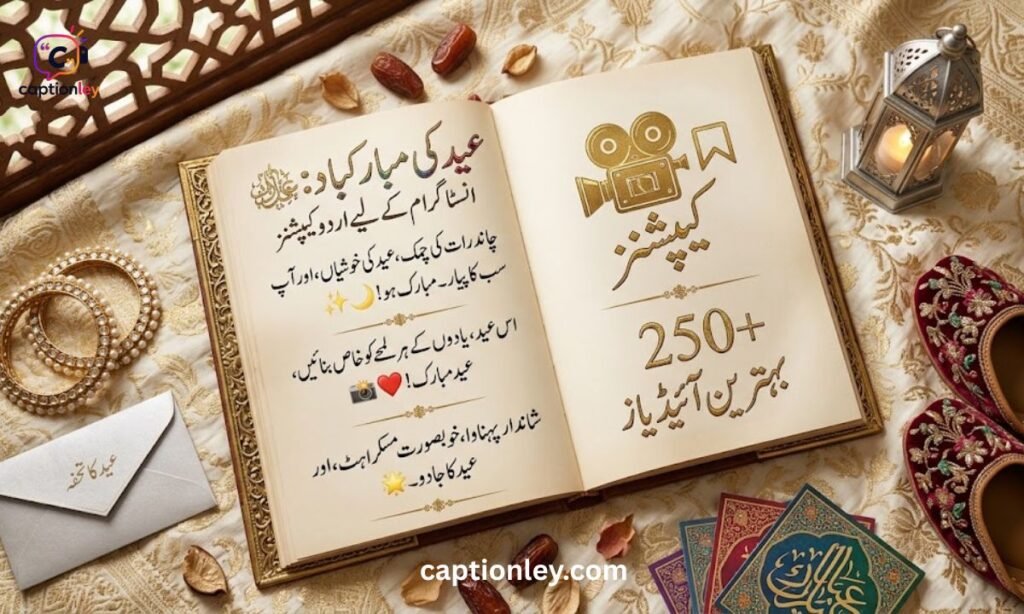 captionley
عید کی مبارکباد:
انسٹاگرام کے لیے اردو کیپشنز
چاند رات کی چمک، عید کی خوشیاں، اور آپ
سب کا پیار۔ مبارک ہو! 🌙✨
اس عید، یادوں کے ہر لمحے کو خاص بنائیں،
عید مبارک! ❤️📸
شاندار پہناوا، خوبصورت مسکراہٹ، اور
عید کا جادو۔ 🌟
کیپشنز
250+
بہترین آئیڈیاز
عید کا تحفہ
captionley.com